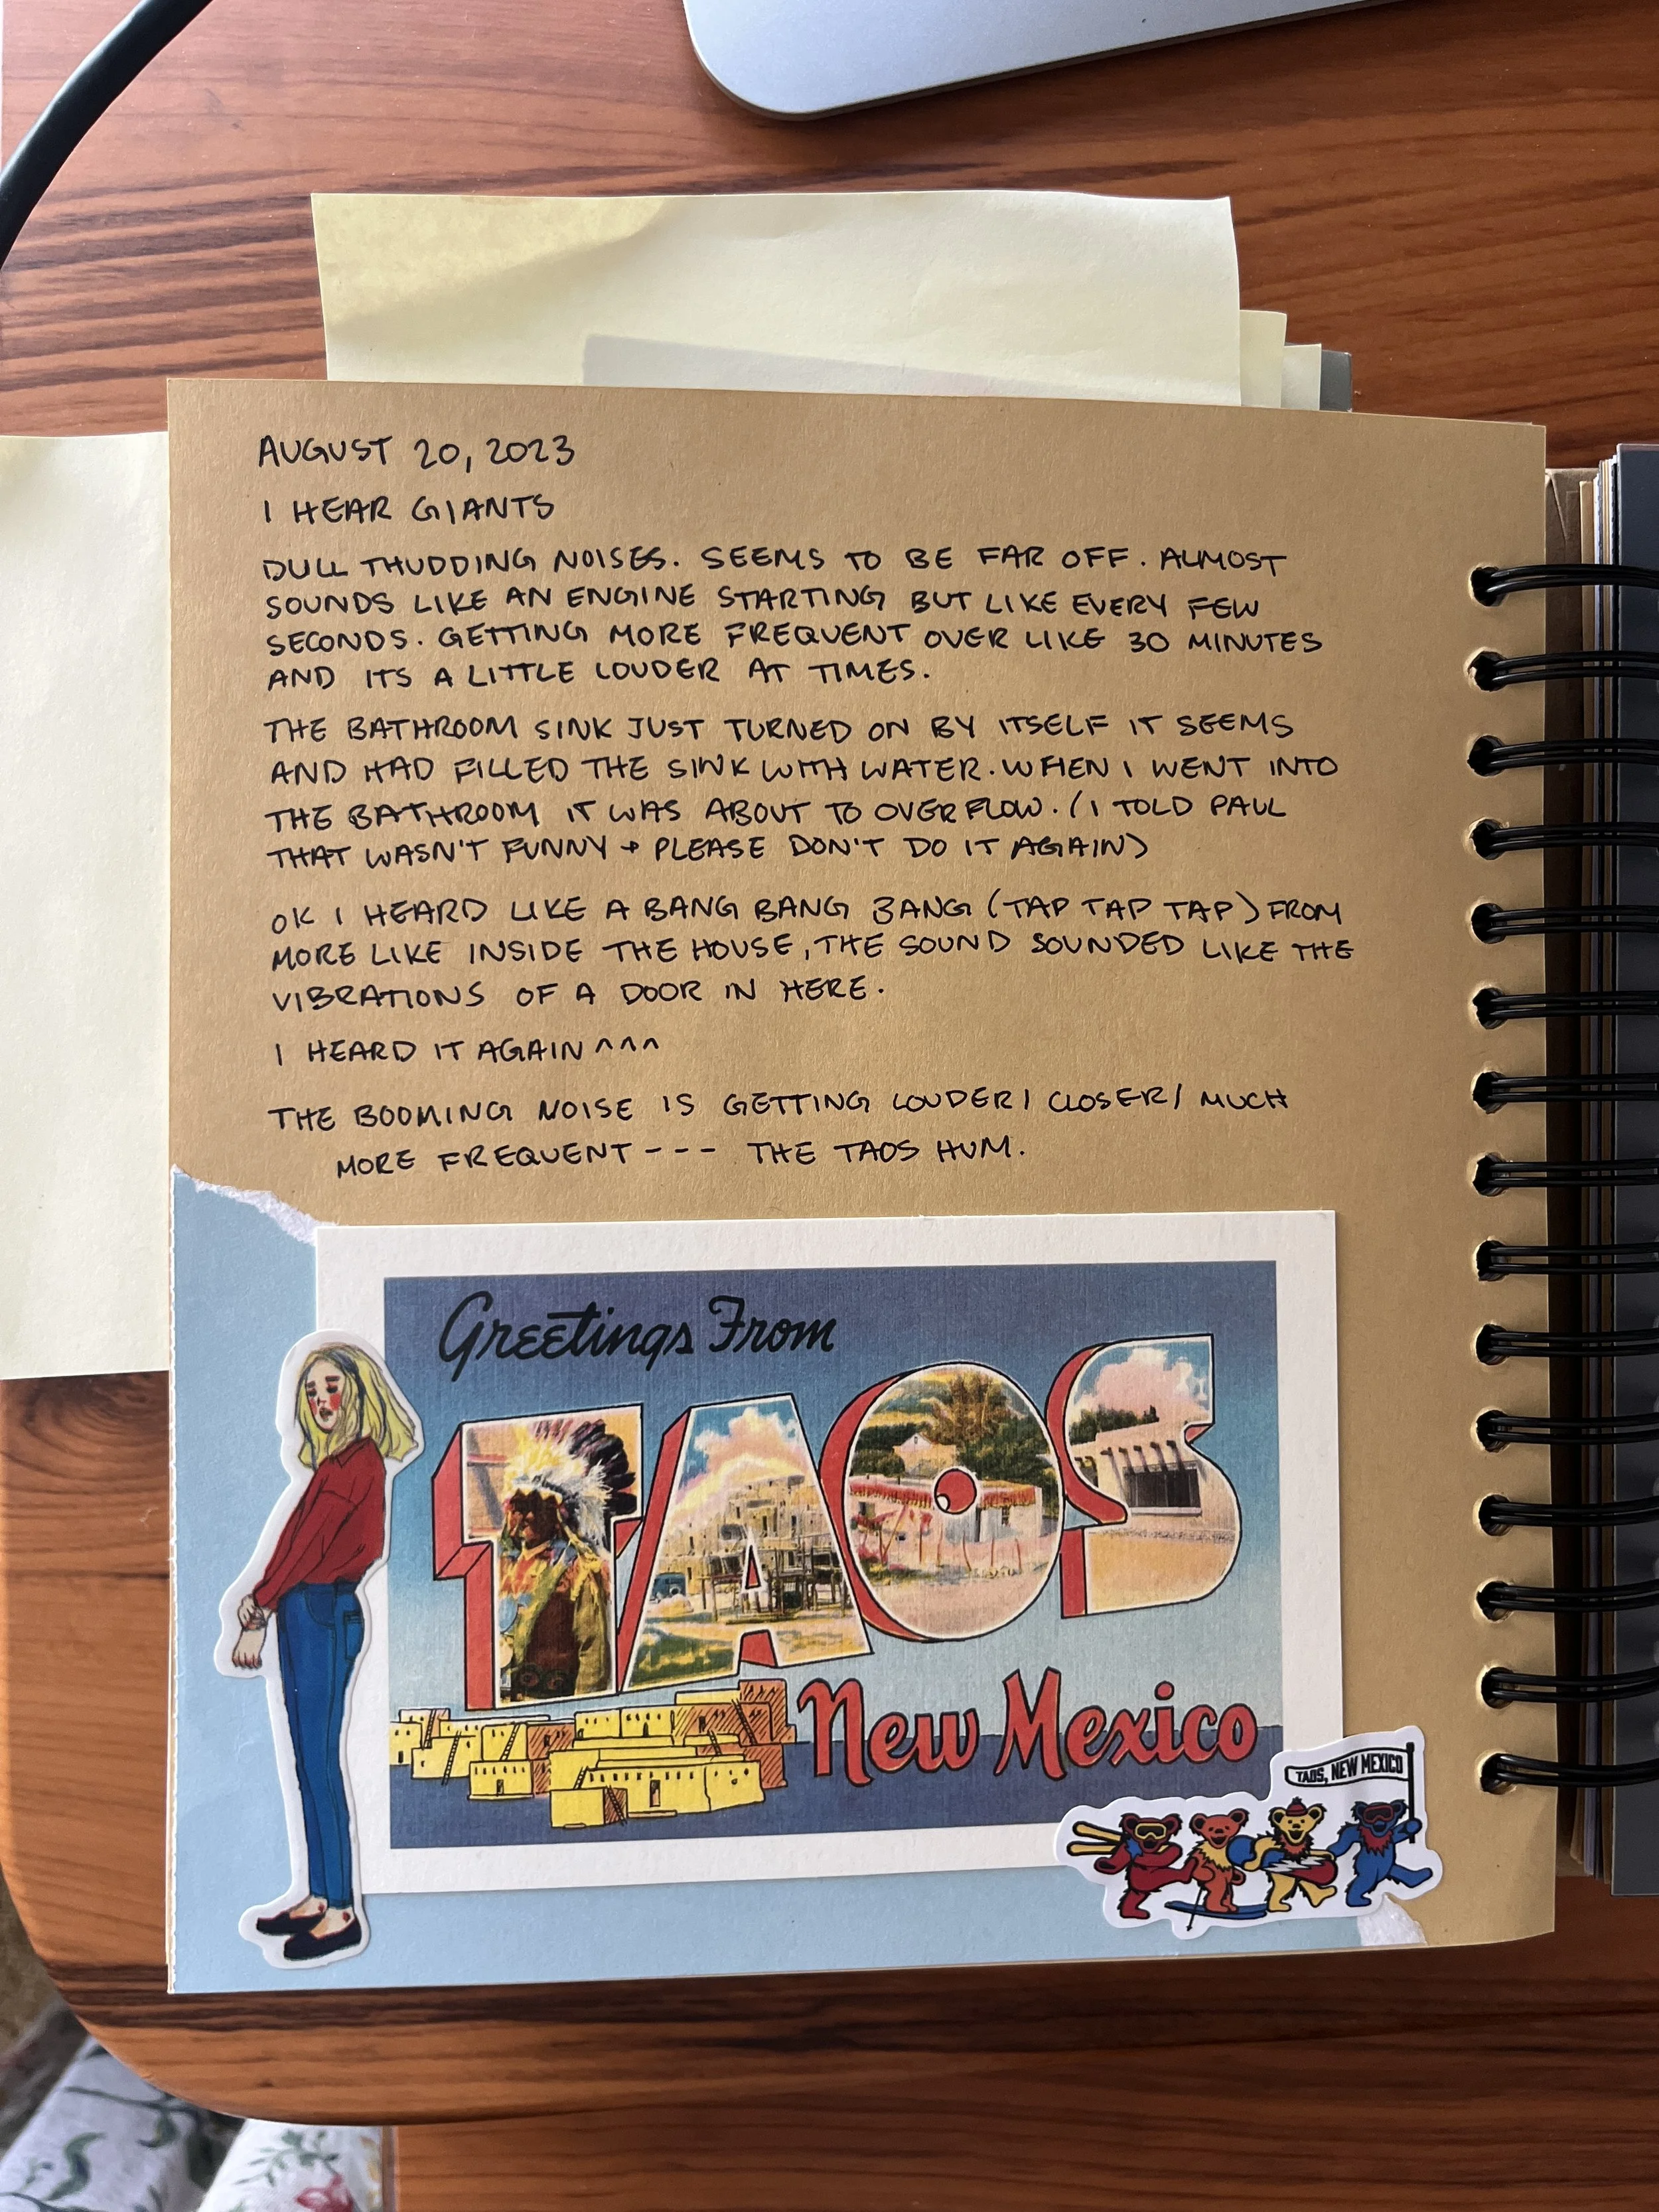 AUGUST 20, 2023
I HEAR GIANTS
DULL THUDDING NOISES. SEEMS TO BE FAR OFF. ALMOST
SOUNDS LIKE AN ENGINE STARTING BUT LIKE EVERY FEW
SECONDS. GETTING MORE FREQUENT OVER LIKE 30 MINUTES
AND ITS A LITTLE LOUDER AT TIMES.
THE BATHROOM SINK JUST TURNED ON BY ITSELF IT SEEMS
AND HAD FILLED THE SINK WITH WATER. WHEN I WENT INTO
THE BATHROOM IT WAS ABOUT TO OVERFLOW. (I TOLD PAUL
THAT WASN'T FUNNY + PLEASE DON'T DO IT AGAIN)
OK I HEARD LIKE A BANG BANG BANG (TAP TAP TAP) FROM
MORE LIKE INSIDE THE HOUSE, THE SOUND SOUNDED LIKE THE
VIBRATIONS OF A DOOR IN HERE.
I HEARD IT AGAIN ^^^
THE BOOMING NOISE IS GETTING LOUDER/ CLOSER/ MUCH
MORE FREQUENT --- THE TAOS HUM.
Greetings From
TAOS
New Mexico
TAOS, NEW MEXICO